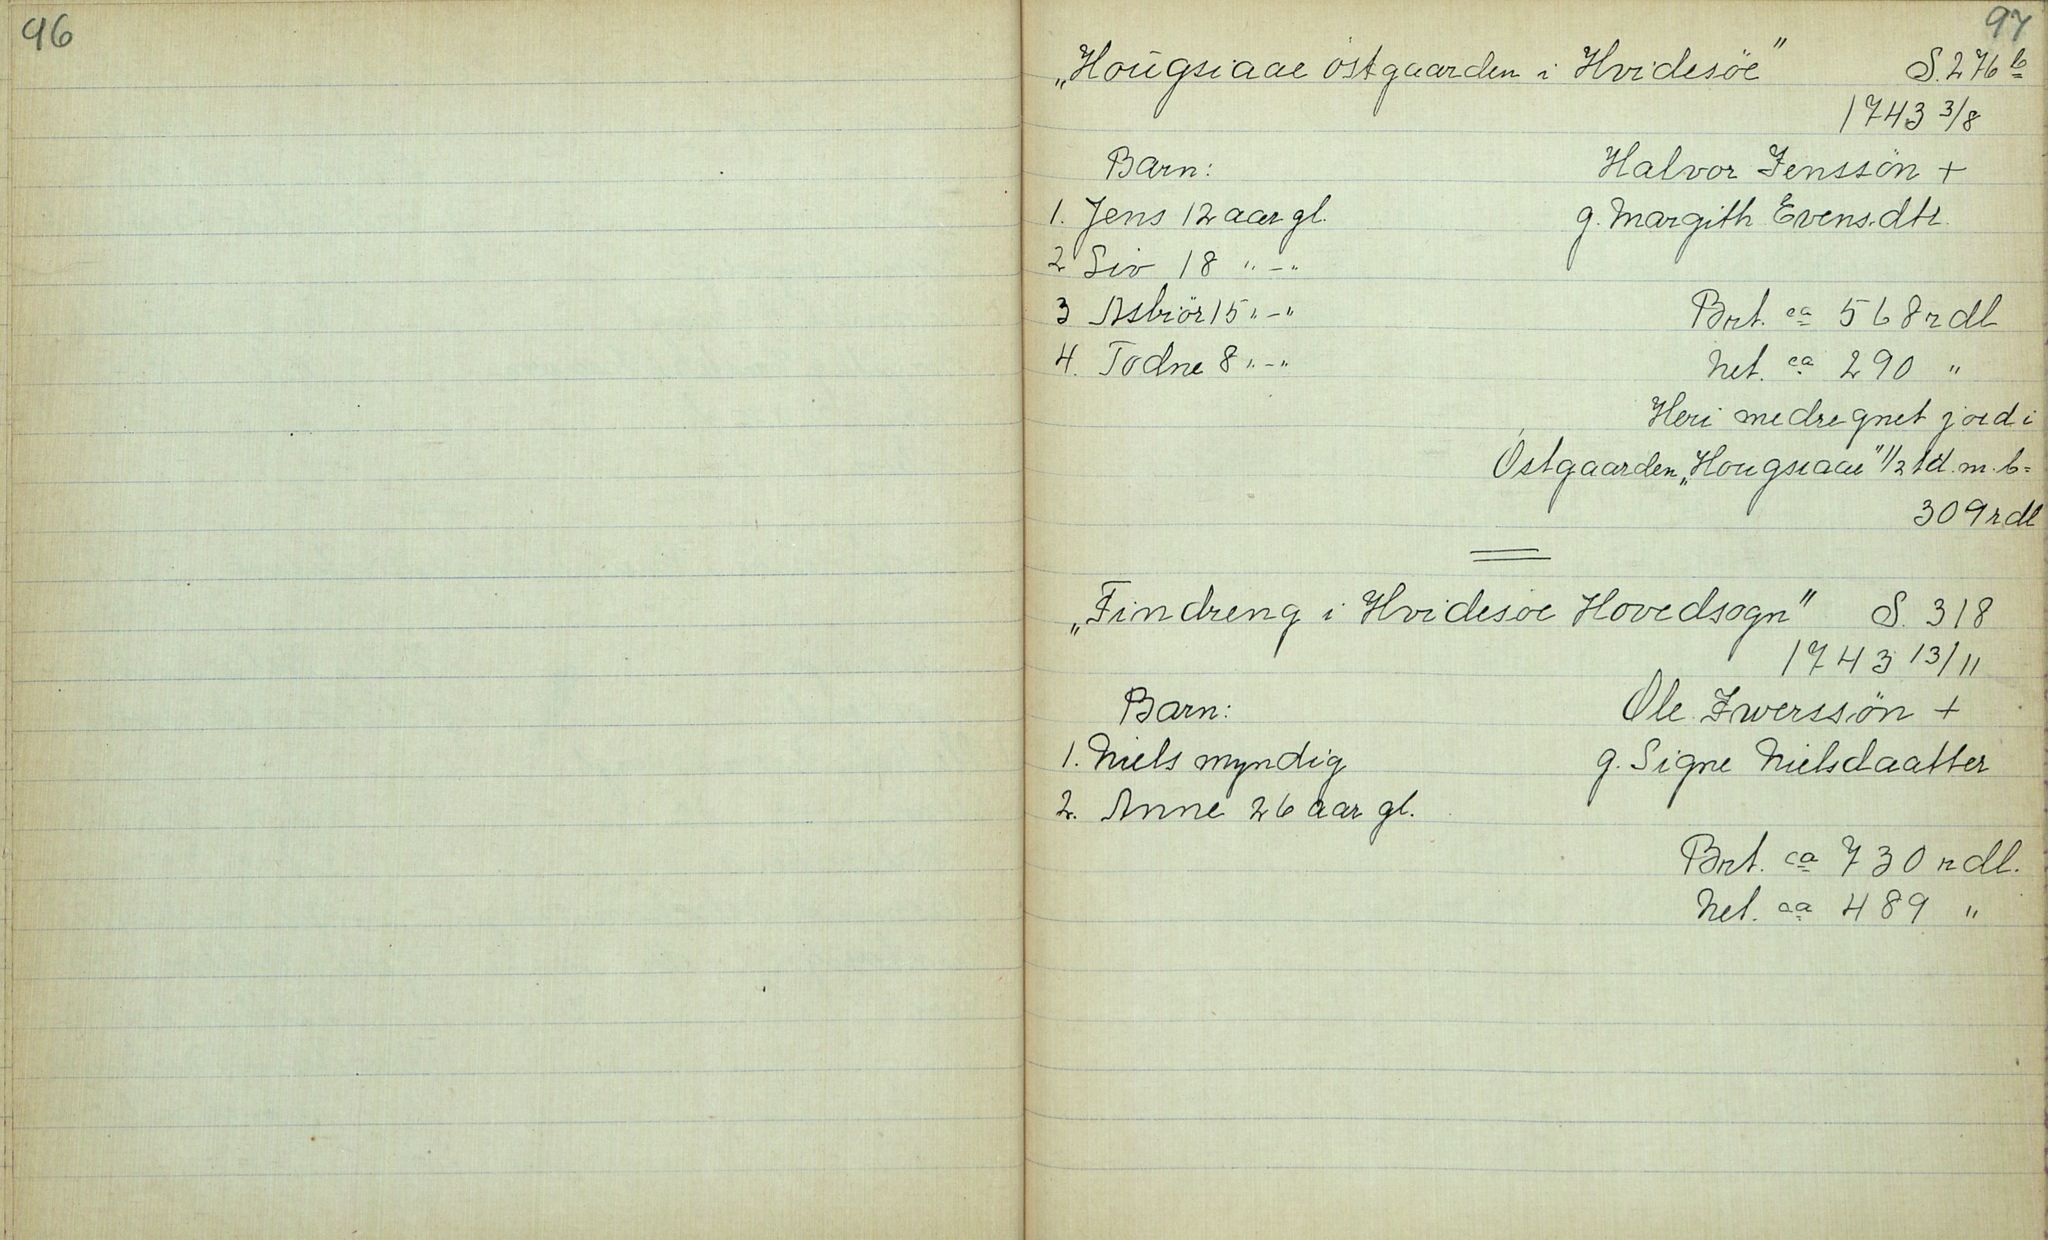 96
97
„Hougsiaae östgaarden i Hvidesöe" S. 276 b
1743 3/8
Barn: Halvor Jenssön +
1. Jens 12 aar gl. g. Margith Evens.dtr.
2 Siv 18 " - "
3 Asbiör 15 " - " Brt. ca 568 rdl
4. Todne 8 " - " Net. ca 290 "
Heri medregnet jord i
Østgaarden „Hougsiaae" 1/2 td. m. b =
309 rdl
„Findreng i Hvidesöe Hovedsogn" S. 318
1743 13/11
Barn: Ole Iwerssön +
1. Niels myndig g. Signe Nielsdaatter
2. Anne 26 aar gl.
Brt. ca 730 rdl.
Net. ca 489 "